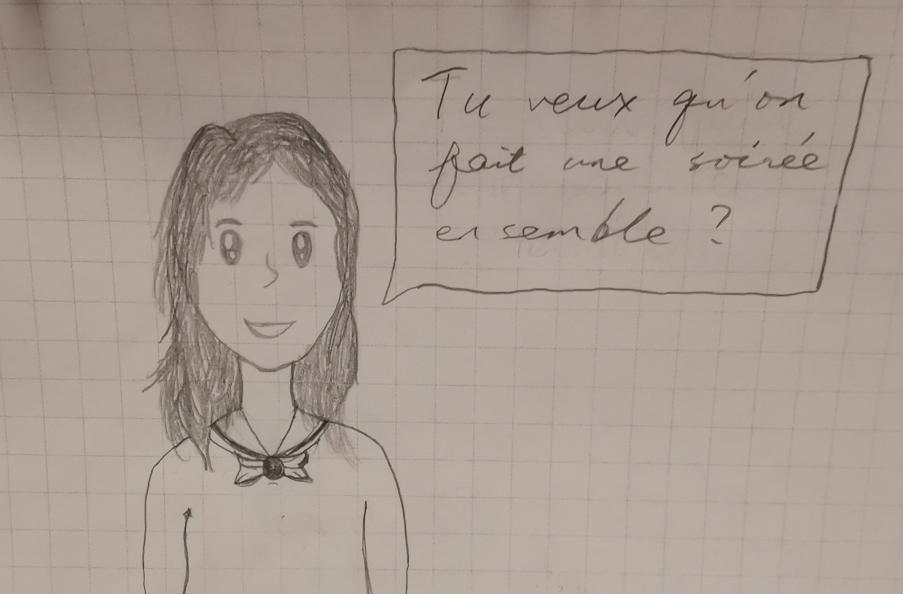 Tu veux qu'on
fait une soirée
ensemble ?